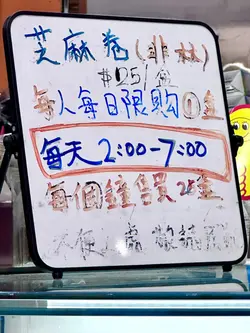 芝麻卷(非林)
$25/盒
每人每日限購①盒
每天2:00-7:00
每個鐘售賣2盒
不便之處 敬請原諒